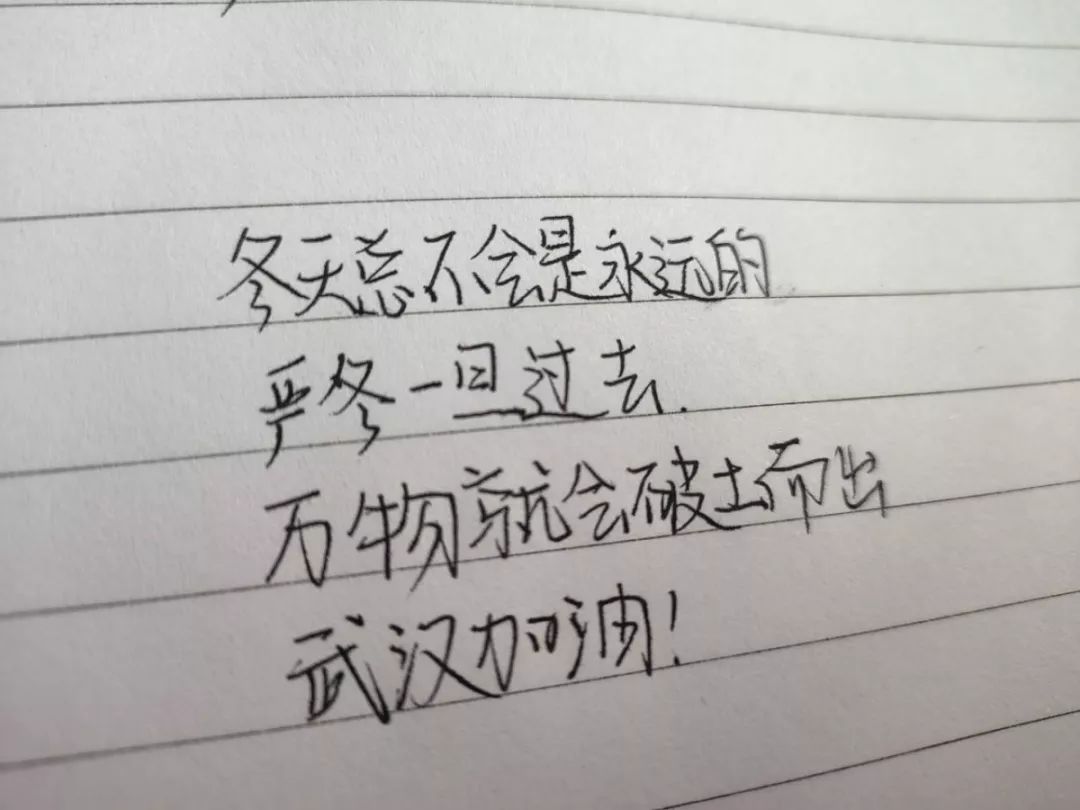 冬天总不会是永远的
严冬一旦过去.
万物就会破土而出
武汉加油!